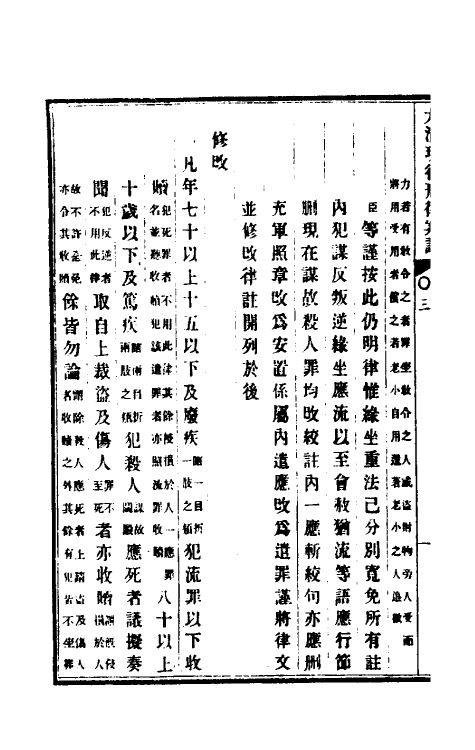 大清現行刑律案語
三
力若有教令之者罪坐教令之人或盜財物旁人受而
將用受用者償之若老小自用還著老小之人追徵
臣等謹按此仍明律惟緣坐重法已分別寬免所有註
內犯謀反叛逆緣坐應流以至會赦猶流等語應行節
刪現在謀故殺人罪均改絞註內一應斬絞句亦應刪
充軍照章改為安置係屬內遣應改為遣罪謹將律文
並修改律註開列於後
修改
凡年七十以上十五以下及廢疾瞎一目折一肢之類犯流罪以下收
贖犯死罪者不用此律其餘侵損於人一應罪名並聽收贖犯該遣罪者亦照流罪收贖八十以上
十歲以下及篤疾瞎兩目折兩肢之類犯殺人謀故鬭毆應死者議擬奏
聞犯反逆者不用此律取自上裁盜及傷人罪不至死者亦收贖謂既侵損於人
故不許全免亦令其收贖餘皆勿論謂除殺人應死者上請盜及傷人者收贖之外其餘有犯皆不坐罪